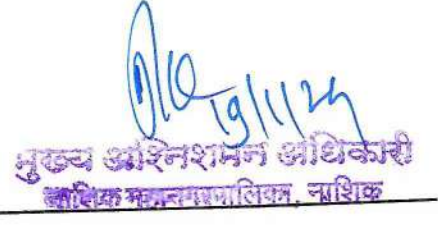 19/11/24
मुख्य अग्निशमन अधिकारी
नाशिक महानगरपालिका, नाशिक